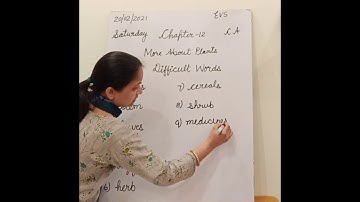 20/02/2021 EVS
Saturday Chapter-12 C.A
More About Plants
Difficult Words
7) cereals
8) shrub
9) medicines
6) herb